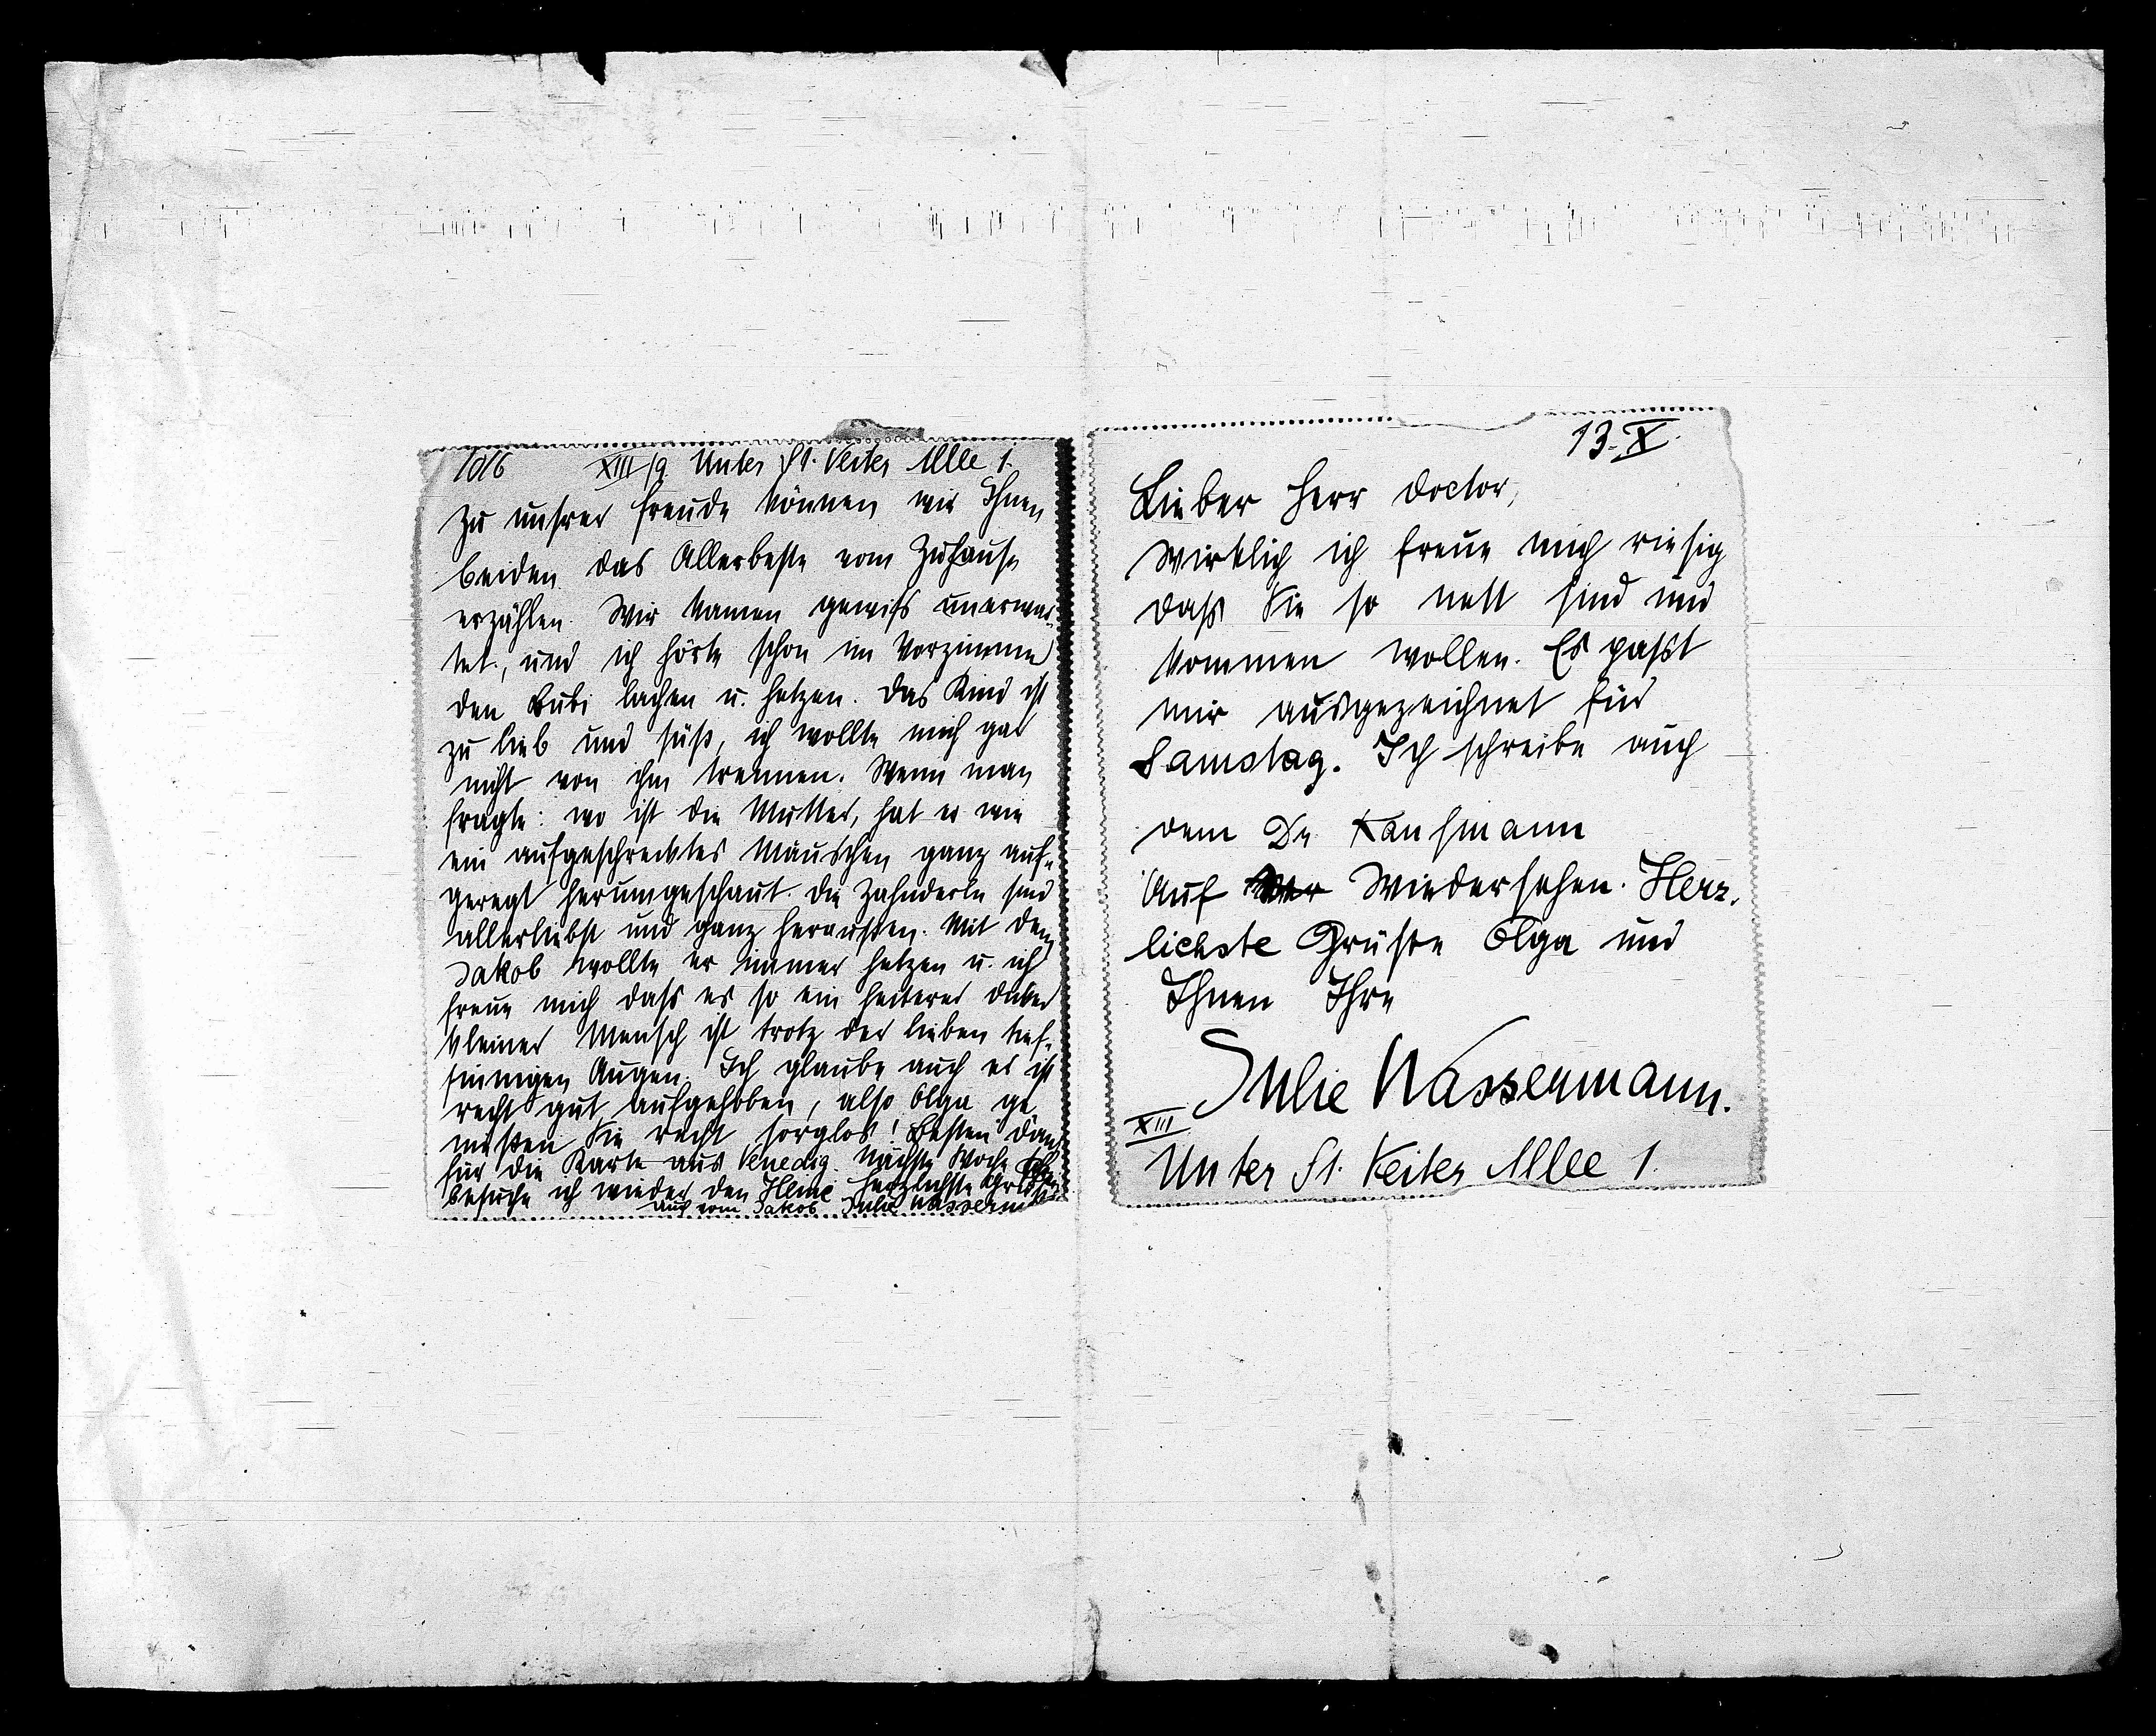 10/6 XIII/9 Unter St. Veiter Allee 1.
Zu unsrer Freude können wir Ihnen
beiden das Allerbeste vom Zuhause
erzählen. Wir kamen gewiss unerwar-
tet, und ich hörte schon im Vorzimmer
den Bubi lachen u. hetzen. Das Kind ist
zu lieb und süß, ich wollte mich gar
nicht von ihm trennen. Wenn man
fragte: wo ist die Mutter, hat er wie
ein aufgeschrecktes Mäuschen ganz auf-
geregt herumgeschaut. Die Zahnderln sind
allerliebst und ganz heraußen. Mit dem
Jakob wollte er immer hetzen u. ich
freue mich dass es so ein heiterer dicker
kleiner Mensch ist trotz der lieben tief-
sinnigen Augen. Ich glaube auch er ist
recht gut aufgehoben, also Olga ge
nießen Sie recht sorglos! Besten Dank
für die Karte aus Venedig. Nächste Woche
besuche ich wieder den Heini Herzlichste Grüße
auch vom Jakob Julie Wasserm
13. X.
Lieber Herr Doctor,
Wirklich ich freue mich riesig
daß Sie so nett sind und
kommen wollen. Es passt
mir ausgezeichnet für
Samstag. Ich schreibe auch
dem Dr. Kaufmann
Auf Wiedersehen. Herz-
lichste Grüße Olga und
Ihnen Ihre
Julie Wassermann.
XIII
Unter St. Veiter Allee 1.